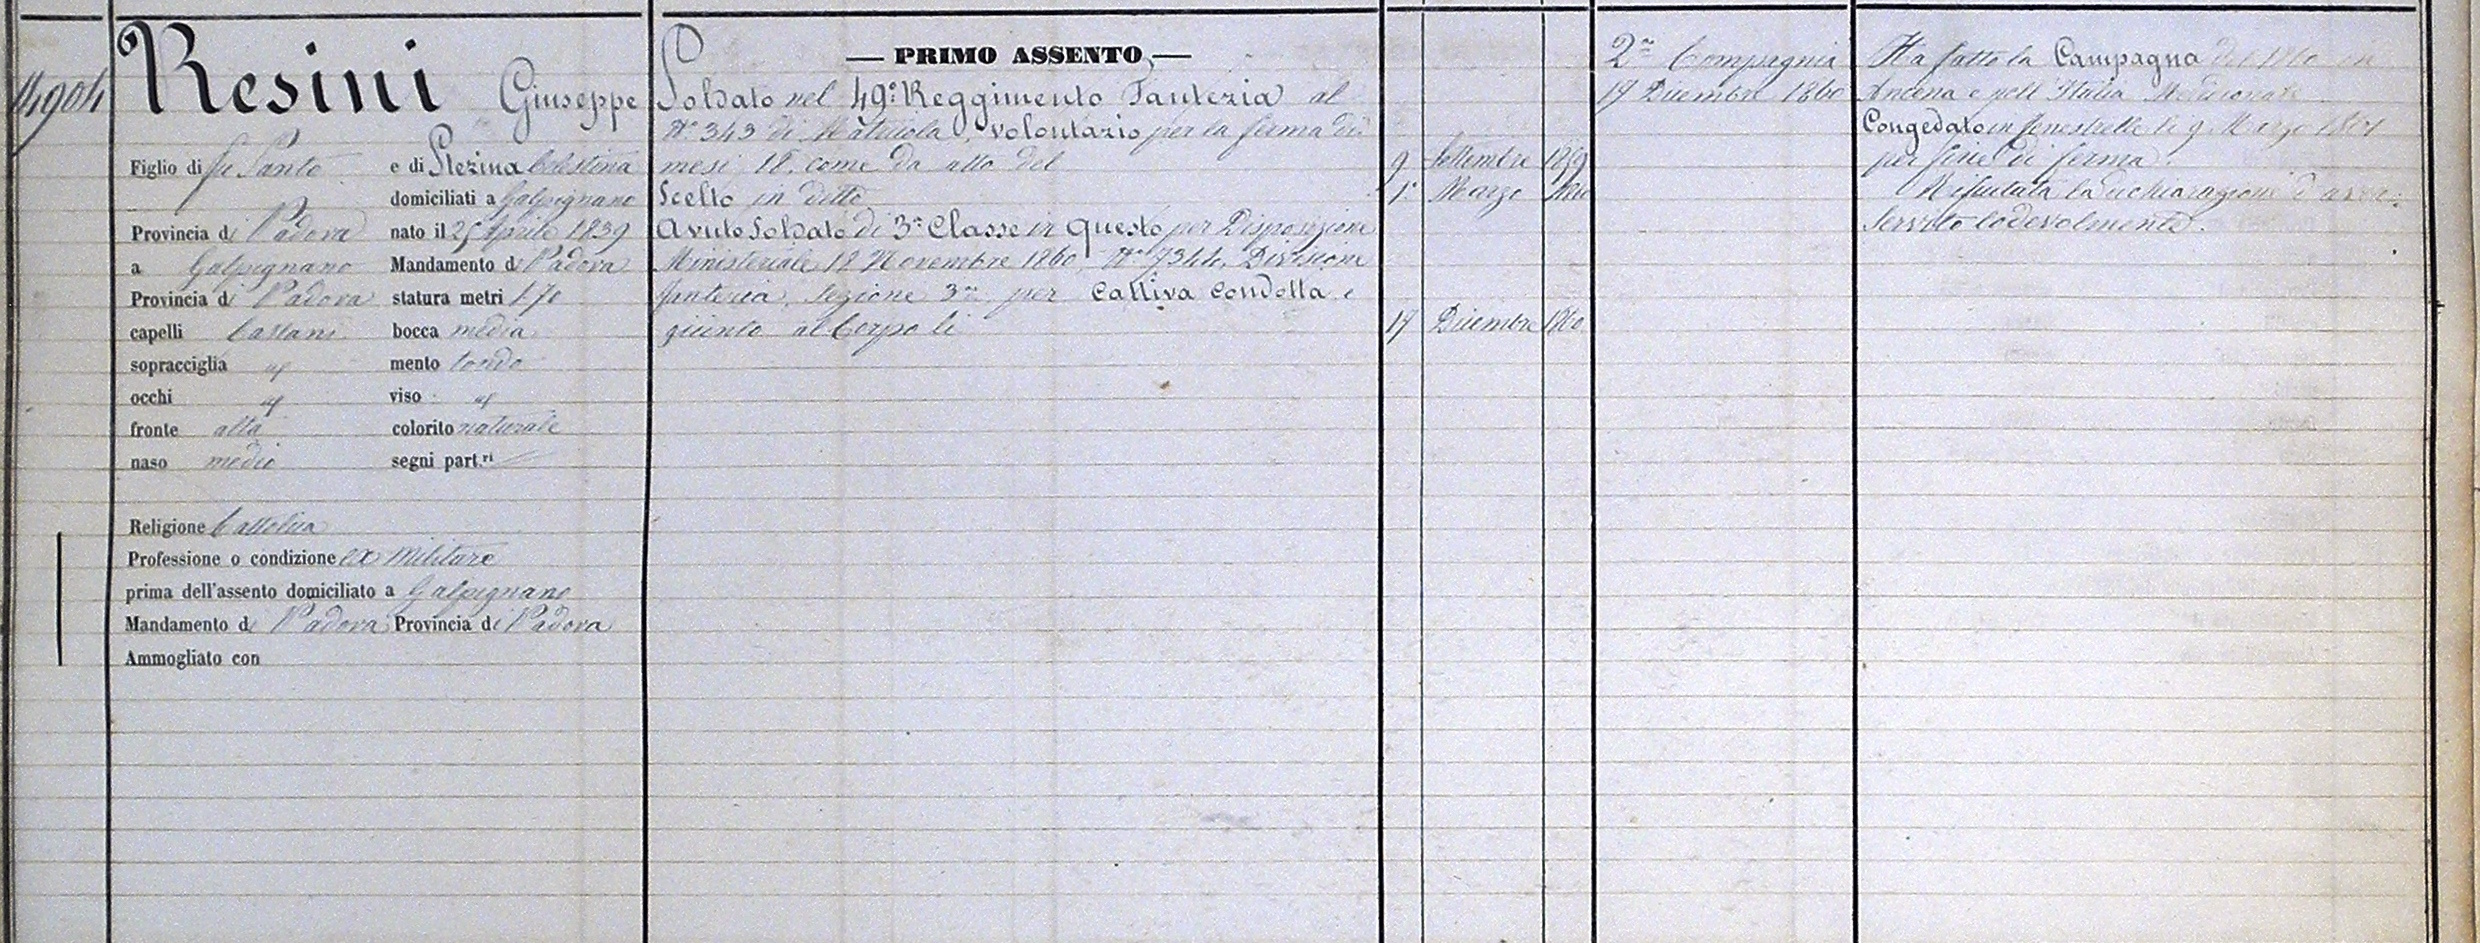 14904
Resini Giuseppe
Figlio di fu Santo e di Plezina Celestina
domiciliati a Galpignano
Provincia di Padova nato il 25 Aprile 1839
a Galpignano Mandamento di Padova
Provincia di Padova statura metri 1.70
capelli Castani bocca media
sopracciglia id mento tondo
occhi id viso id
fronte alta colorito naturale
naso medio segni part.ri
Religione Cattolica
Professione o condizione ex Militare
prima dell'assento domiciliato a Galpignano
Mandamento di Padova Provincia di Padova
Ammogliato con
— PRIMO ASSENTO —
Soldato nel 49º Reggimento Fanteria al
Nº 343 di Matricola, volontario per la ferma di
mesi 18. come da atto del 9 Settembre 1859
Scelto in detto 1º Marzo 1860
Avuto Soldato di 3ª Classe in questo per Disposizione
Ministeriale 12 Novembre 1860, Nº 7344, Divisione
fanteria, Sezione 3ª per Cattiva condotta e
giunto al Corpo li 17 Dicembre 1860
2ª Compagnia
17 Dicembre 1860
Ha fatto la Campagna del 1860 in
Ancona e nell'Italia Meridionale
Congedato in fenestrelle li 9 Marzo 1861
per fine di ferma.
Rifiutata la dichiarazione d'aver
Servito lodevolmente.